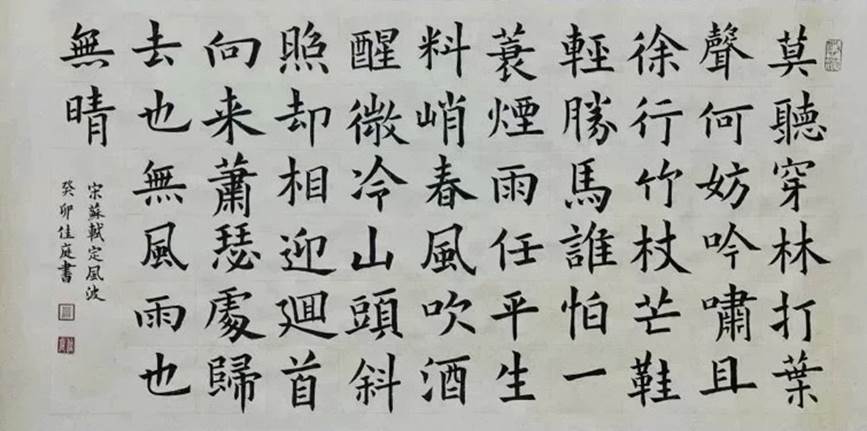 莫聽穿林打葉
聲何妨吟嘯且
徐行竹杖芒鞋
輕勝馬誰怕一
蓑煙雨任平生
料峭春風吹酒
醒微冷山頭斜
照却相迎迴首
向来蕭瑟處歸
去也無風雨也
無晴
宋蘇軾定風波
癸卯佳庭書